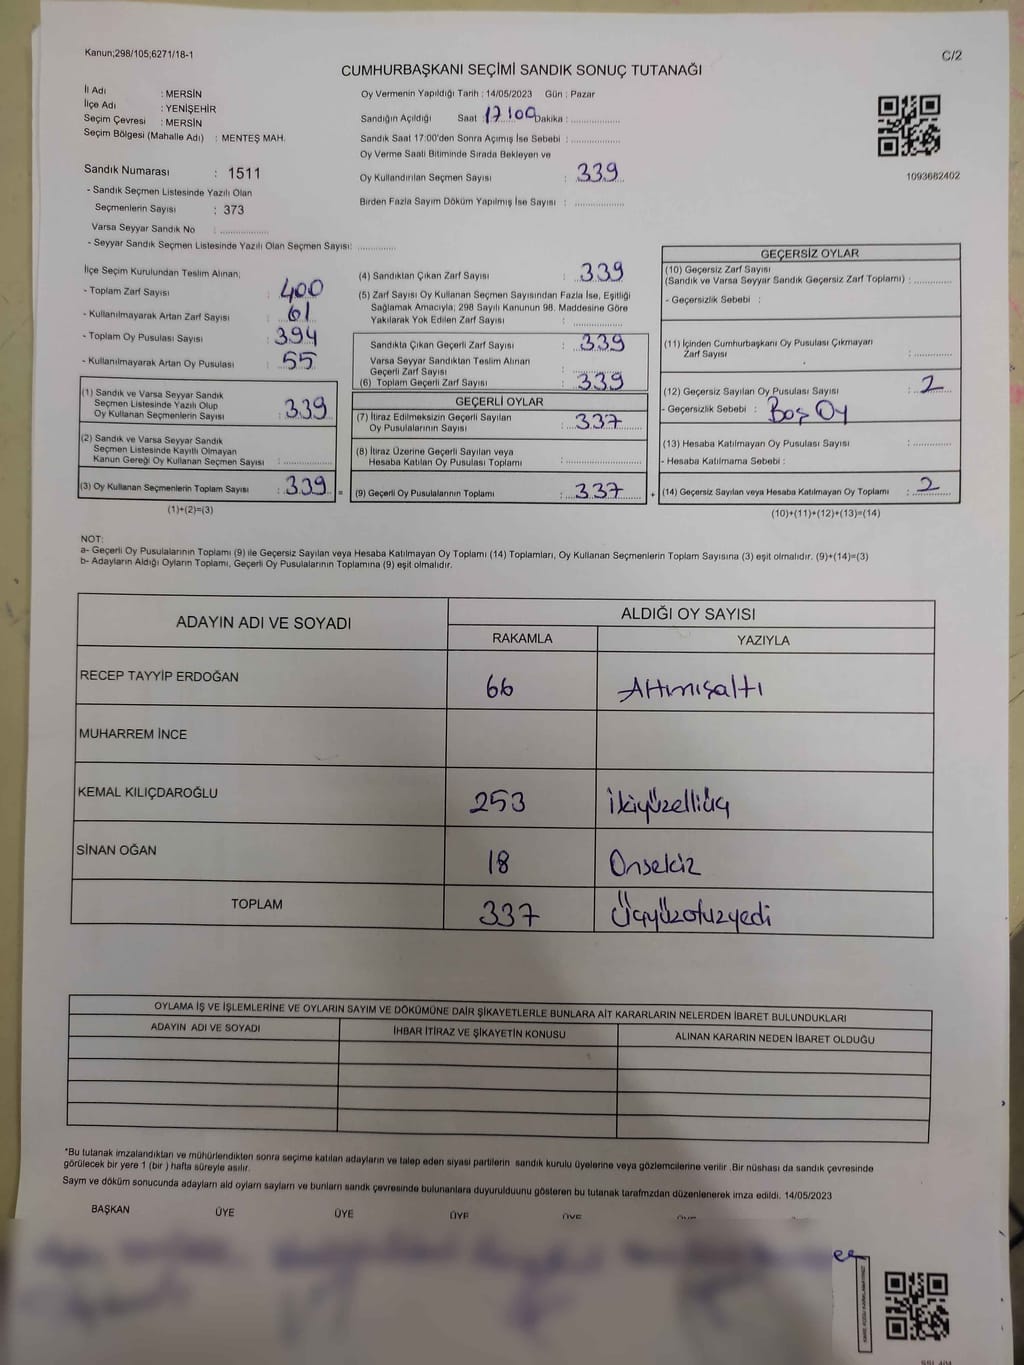 Kanun;298/105;6271/18-1
C/2
CUMHURBAŞKANI SEÇİMİ SANDIK SONUÇ TUTANAĞI
İl Adı : MERSİN
İlçe Adı : YENİŞEHİR
Seçim Çevresi : MERSİN
Seçim Bölgesi (Mahalle Adı) : MENTEŞ MAH.
Sandık Numarası : 1511
- Sandık Seçmen Listesinde Yazılı Olan
Seçmenlerin Sayısı : 373
Varsa Seyyar Sandık No : ..............
- Seyyar Sandık Seçmen Listesinde Yazılı Olan Seçmen Sayısı: ............
Oy Vermenin Yapıldığı Tarih : 14/05/2023 Gün : Pazar
Sandığın Açıldığı Saat : 17:00 Dakika : ..............
Sandık Saat 17:00'den Sonra Açımış İse Sebebi : ..............
Oy Verme Saati Bitiminde Sırada Bekleyen ve
Oy Kullandırılan Seçmen Sayısı : 339
Birden Fazla Sayım Döküm Yapılmış İse Sayısı : ..............
1093682402
İlçe Seçim Kurulundan Teslim Alınan;
- Toplam Zarf Sayısı : 400
- Kullanılmayarak Artan Zarf Sayısı : 61
- Toplam Oy Pusulası Sayısı : 394
- Kullanılmayarak Artan Oy Pusulası : 55
(1) Sandık ve Varsa Seyyar Sandık
Seçmen Listesinde Yazılı Olup
Oy Kullanan Seçmenlerin Sayısı : 339
(2) Sandık ve Varsa Seyyar Sandık
Seçmen Listesinde Kayıtlı Olmayan
Kanun Gereği Oy Kullanan Seçmen Sayısı : ..............
(3) Oy Kullanan Seçmenlerin Toplam Sayısı : 339 =
(1)+(2)=(3)
(4) Sandıktan Çıkan Zarf Sayısı : 339
(5) Zarf Sayısı Oy Kullanan Seçmen Sayısından Fazla İse, Eşitliği
Sağlamak Amacıyla; 298 Sayılı Kanunun 98. Maddesine Göre
Yakılarak Yok Edilen Zarf Sayısı : ..............
Sandıkta Çıkan Geçerli Zarf Sayısı : 339
Varsa Seyyar Sandıktan Teslim Alınan
Geçerli Zarf Sayısı : ..............
(6) Toplam Geçerli Zarf Sayısı : 339
GEÇERLİ OYLAR
(7) İtiraz Edilmeksizin Geçerli Sayılan
Oy Pusulalarının Sayısı : 337
(8) İtiraz Üzerine Geçerli Sayılan veya
Hesaba Katılan Oy Pusulası Toplamı : ..............
(9) Geçerli Oy Pusulalarının Toplamı : 337 +
GEÇERSİZ OYLAR
(10) Geçersiz Zarf Sayısı
(Sandık ve Varsa Seyyar Sandık Geçersiz Zarf Toplamı) : ............
- Geçersizlik Sebebi :
(11) İçinden Cumhurbaşkanı Oy Pusulası Çıkmayan
Zarf Sayısı : ............
(12) Geçersiz Sayılan Oy Pusulası Sayısı : 2
- Geçersizlik Sebebi : Boş Oy
(13) Hesaba Katılmayan Oy Pusulası Sayısı : ............
- Hesaba Katılmama Sebebi :
(14) Geçersiz Sayılan veya Hesaba Katılmayan Oy Toplamı : 2
(10)+(11)+(12)+(13)=(14)
NOT:
a- Geçerli Oy Pusulalarının Toplamı (9) ile Geçersiz Sayılan veya Hesaba Katılmayan Oy Toplamı (14) Toplamları, Oy Kullanan Seçmenlerin Toplam Sayısına (3) eşit olmalıdır. (9)+(14)=(3)
b- Adayların Aldığı Oyların Toplamı, Geçerli Oy Pusulalarının Toplamına (9) eşit olmalıdır.
ADAYIN ADI VE SOYADI
ALDIĞI OY SAYISI
RAKAMLA YAZIYLA
RECEP TAYYİP ERDOĞAN 66 Altmışaltı
MUHARREM İNCE
KEMAL KILIÇDAROĞLU 253 İkiyüzelliüç
SİNAN OĞAN 18 Onsekiz
TOPLAM 337 Üçyüzotuzyedi
OYLAMA İŞ VE İŞLEMLERİNE VE OYLARIN SAYIM VE DÖKÜMÜNE DAİR ŞİKAYETLERLE BUNLARA AİT KARARLARIN NELERDEN İBARET BULUNDUKLARI
ADAYIN ADI VE SOYADI İHBAR İTİRAZ VE ŞİKAYETİN KONUSU ALINAN KARARIN NEDEN İBARET OLDUĞU
*Bu tutanak imzalandıktan ve mühürlendikten sonra seçime katılan adayların ve talep eden siyasi partilerin sandık kurulu üyelerine veya gözlemcilerine verilir .Bir nüshası da sandık çevresinde
görülecek bir yere 1 (bir ) hafta süreyle asılır.
Sayım ve döküm sonucunda adayların ald oyların sayları ve bunların sandk çevresinde bulunanlara duyurulduunu gösteren bu tutanak tarafmzdan düzenlenerek imza edildi. 14/05/2023
BAŞKAN ÜYE ÜYE ÜYE ÜYE